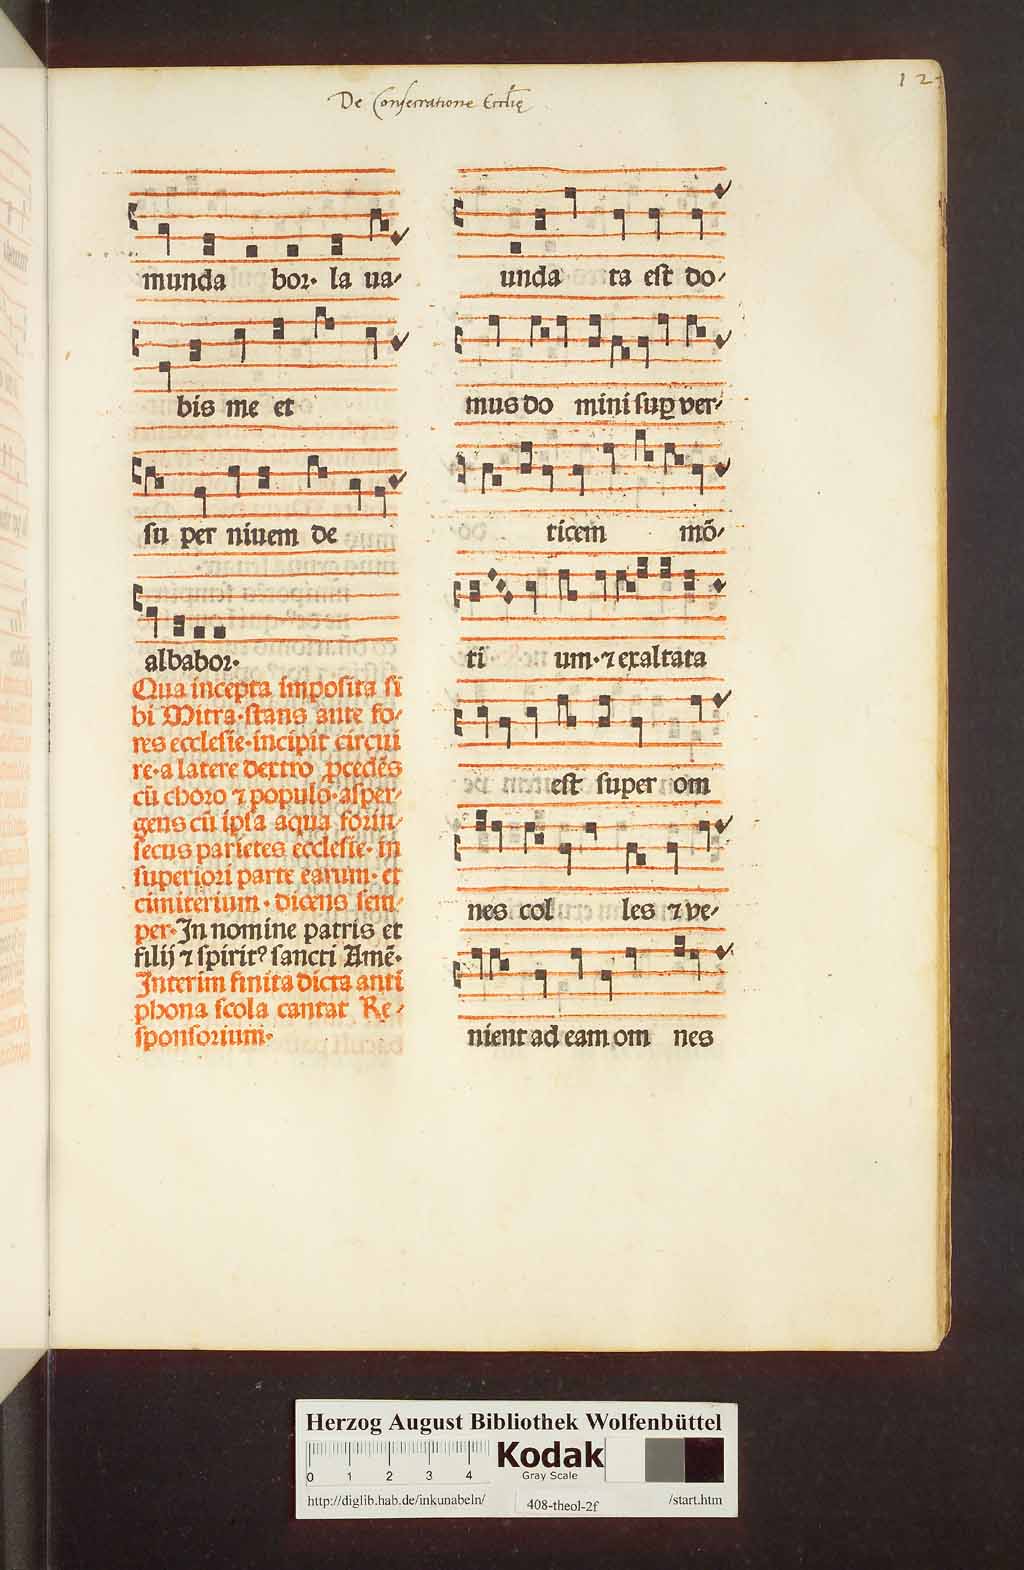 De Consecratione Eccl̄ię
munda bor· la ua-
bis me et
su per niuem de
albabor·
Qua incepta imposita si
bi Mitra·stans ante fo-
res ecclesie·incipit circui
re·a latere dextro p̱cedēs
cū choro ⁊ populo·asper-
gens cū ipsa aqua forin-
secus parietes ecclesie· in
superiori parte earum· et
cimiterium · dicens sem-
per·In nomine patris et
filij ⁊ spiritꝰ sancti Amē·
Interim finita dicta anti
phona scola cantat Re-
sponsorium·
unda ta est do-
mus do mini suꝑ ver-
ticem mō-
ti um·⁊ exaltata
est super om
nes col les ⁊ ve-
nient ad eam om nes
Herzog August Bibliothek Wolfenbüttel
0 1 2 3 4
Kodak
Gray Scale
http://diglib.hab.de/inkunabeln/ 408-theol-2f /start.htm